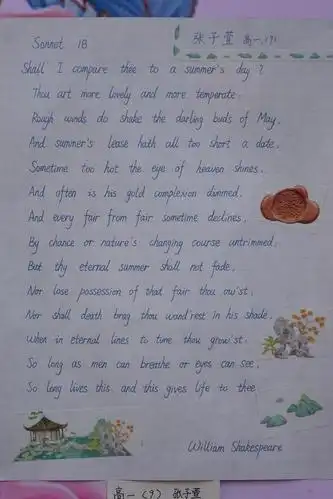 Sonnet 18
张子萱 高一.(9)
Shall I compare thee to a summer's day ?
Thou art more lovely and more temperate.
Rough winds do shake the darling buds of May,
And summer's lease hath all too short a date.
Sometime too hot the eye of heaven shines,
And often is his gold complexion dimmed.
And every fair from fair sometime declines,
By chance or nature's changing course untrimmed;
But thy eternal summer shall not fade,
Nor lose possession of that fair thou ow'st;
Nor shall death brag thou wand'rest in his shade,
When in eternal lines to time thou grow'st;
So long as men can breathe or eyes can see,
So long lives this and this gives life to thee
William Shakespeare
高一 (9) 张子萱